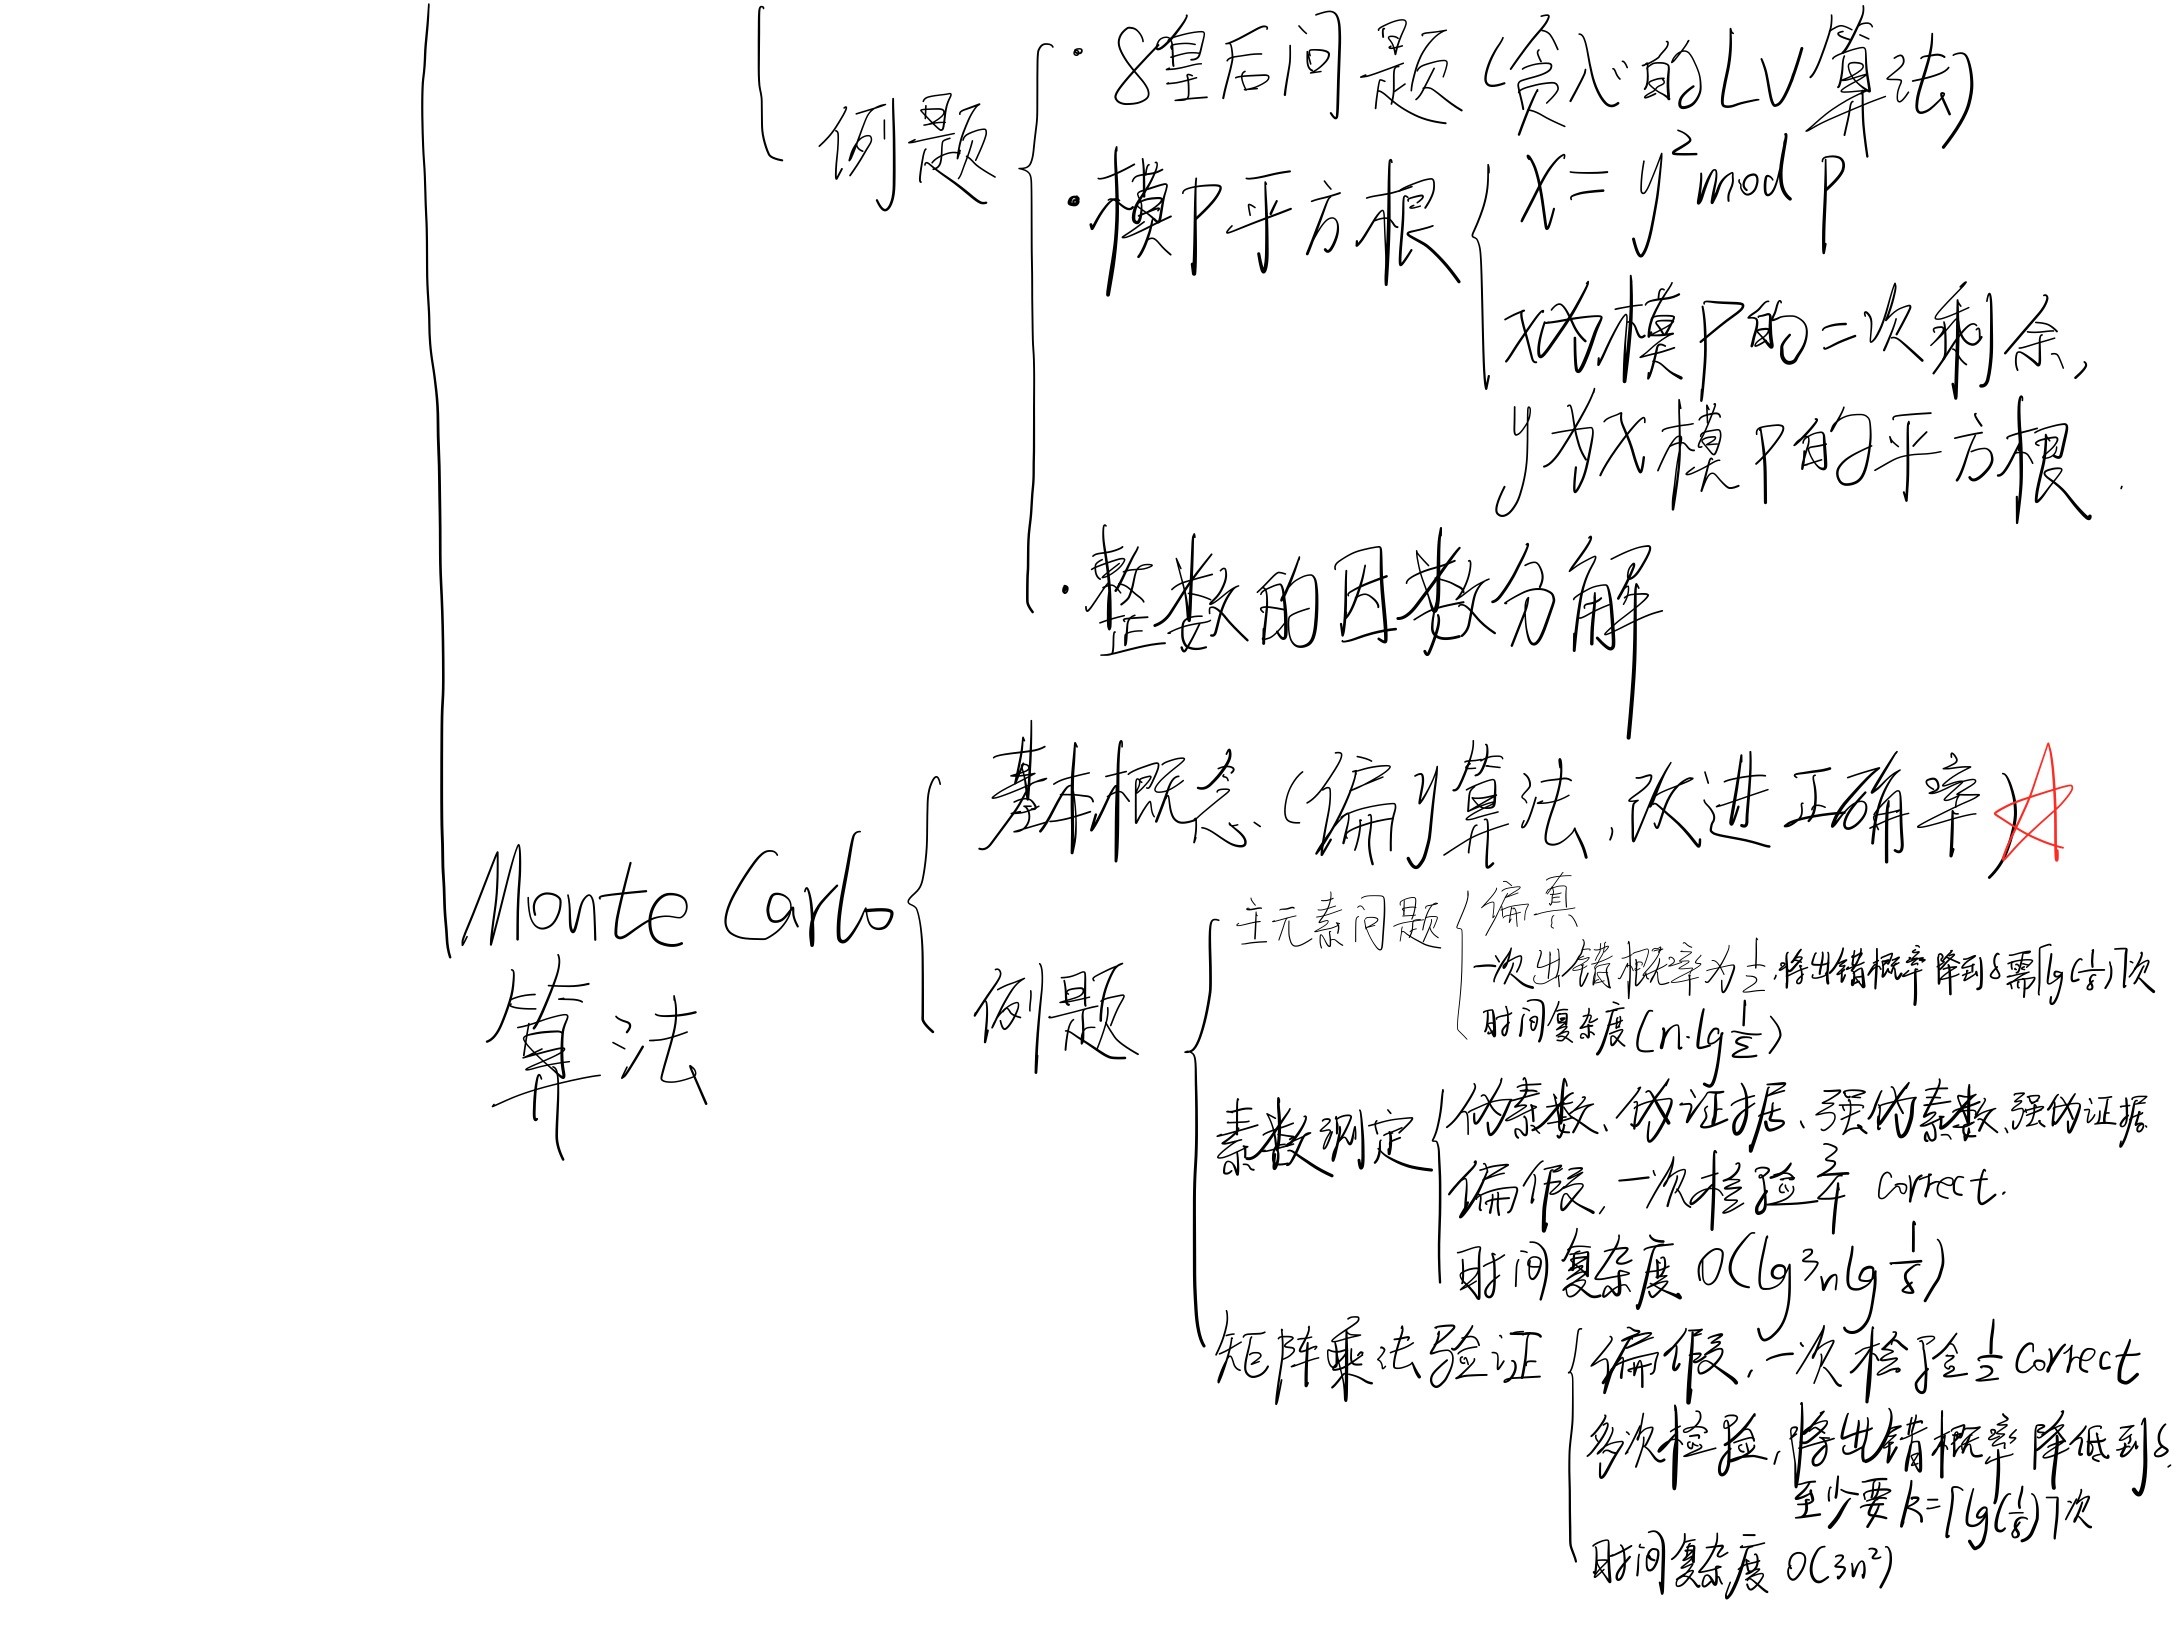 例题
· 8皇后问题(贪心的LV算法)
· 模P平方根
x = y² mod p
x为模P的二次剩余,
y为x模P的平方根.
· 整数的因数分解
Monte Carlo
算法
基本概念(偏y算法,改进正确率)☆
例题
主元素问题
偏真
一次出错概率为1/2,将出错概率降到δ需⌈lg(1/δ)⌉次
时间复杂度(n·lg 1/ε)
素数测定
伪素数、伪证据、强伪素数、强伪证据
偏假,一次检验3/4 correct.
时间复杂度 O(lg³n lg 1/δ)
矩阵乘法验证
偏假,一次检验1/2 correct
多次检验,将出错概率降低到δ,
至少要 k=⌈lg(1/δ)⌉次
时间复杂度 O(3n²)